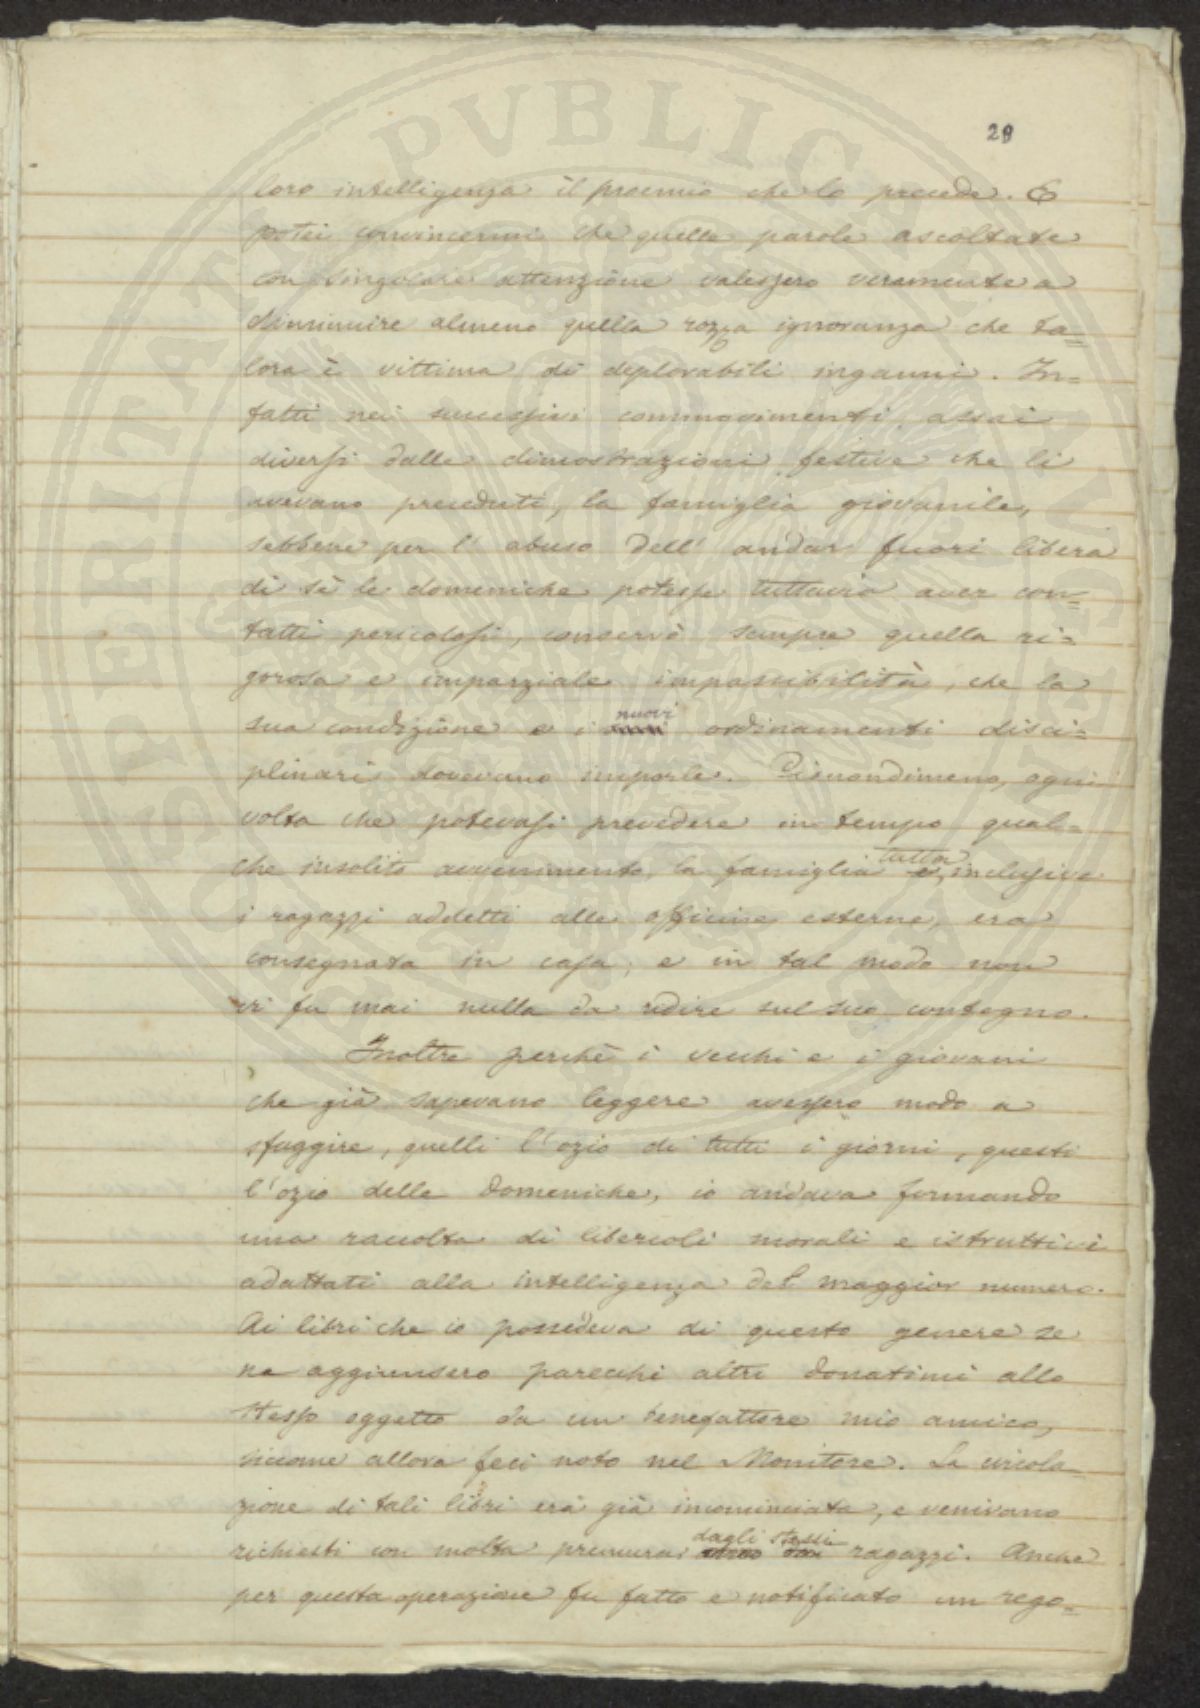 29
loro intelligenza il proemio che lo precede. E
potei convincermi che quelle parole ascoltate
con singolare attenzione valessero veramente a
diminuire almeno quella rozza ignoranza che ta=
lora è vittima di deplorabili inganni. In=
fatti nei successivi commovimenti assai
diversi dalle dimostrazioni festive che li
avevano preceduti, la famiglia giovanile,
sebbene per l' abuso dell' andar fuori libera
di sè le domeniche potesse tuttavia aver con=
tatti pericolosi, conservò sempre quella ri=
gorosa e imparziale impassibilità, che la
nuovi
sua condizione e i ordinamenti disci=
plinari dovevano imporle. Ciònondimeno, ogni
volta che potevasi prevedere in tempo qual=
tutta
che insolito avvenimento, la famiglia, inclusive
i ragazzi addetti alle officine esterne, era
consegnata in casa; e in tal modo non
vi fu mai nulla da ridire sul suo contegno.
Inoltre perchè i vecchi e i giovani
che già sapevano leggere avessero modo a
sfuggire, quelli l'ozio di tutti i giorni, questi
l'ozio delle domeniche, io andava formando
una raccolta di libercoli morali e istruttivi
adattati alla intelligenza del maggior numero.
Ai libri che io possedeva di questo genere se
ne aggiunsero parecchi altri donatimi allo
stesso oggetto da un benefattore mio amico,
siccome allora feci noto nel Monitore. La circola
zione di tali libri era già incominciata, e venivano
dagli stessi
richiesti con molta premura ragazzi. Anche
per questa operazione fu fatto e notificato un rego=
PROSPERITATI PVBLICAE AVGENDAE